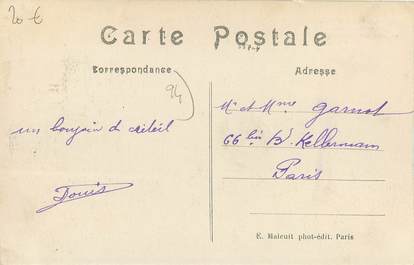 20 €
Carte Postale
Correspondance
Adresse
94
Mr et Mme Garnot
un bonjour de Créteil
66 bis Bd Kellermann
Paris
Louis
E. Malcuit phot-édit. Paris